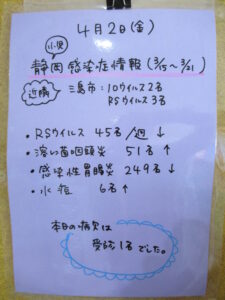 4月2日(金)
小児
静岡 感染症情報(3/15~3/21)
近隣 三島市:ロタウイルス2名
RSウイルス3名
・RSウイルス 45名/週 ↓
・溶レン菌咽頭炎 51名 ↑
・感染性胃腸炎 249名 ↓
・水痘 6名 ↑
本日の病児は
受診1名でした。